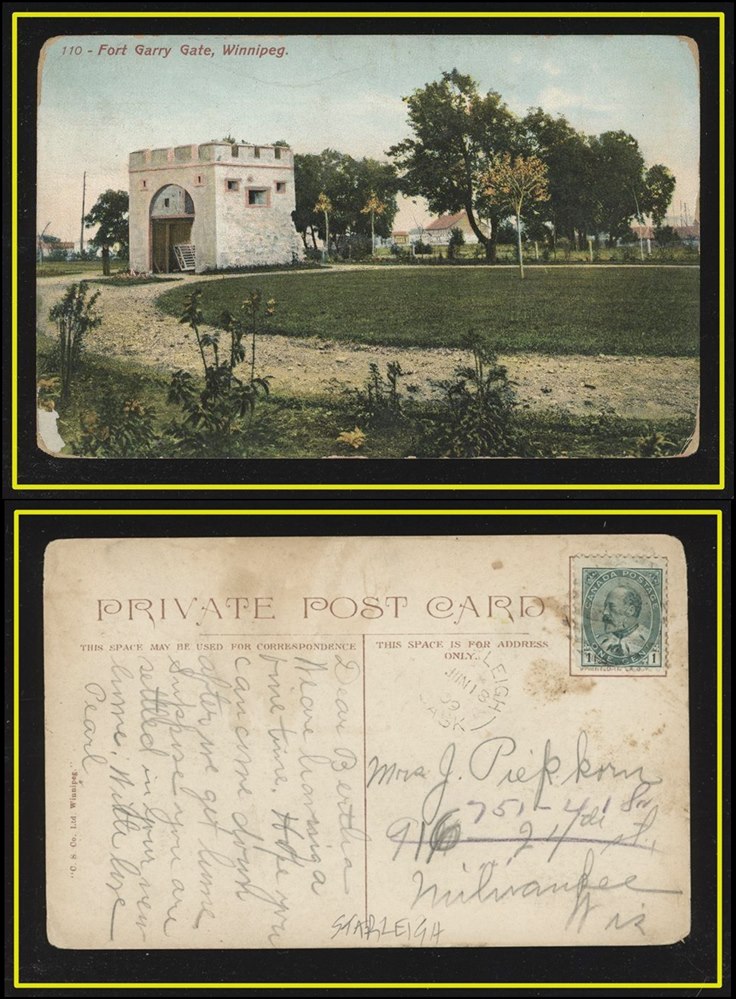 110 - Fort Garry Gate, Winnipeg.
PRIVATE POST CARD
THIS SPACE MAY BE USED FOR CORRESPONDENCE
THIS SPACE IS FOR ADDRESS
ONLY.
CANADA POSTAGE
ONE CENT
1 1
LEIGH
JUN 18
SASK
Dear Bertha
Are having a
fine time. Hope you
can come down
after we get home
Suppose you are
settled in your new
home. With love
Pearl
Mrs J. Piepkorn
751 - 41 St
916 - 24th St.
Milwaukee
Wis
STARLEIGH
"O. S Co. Ltd. Winnipeg."